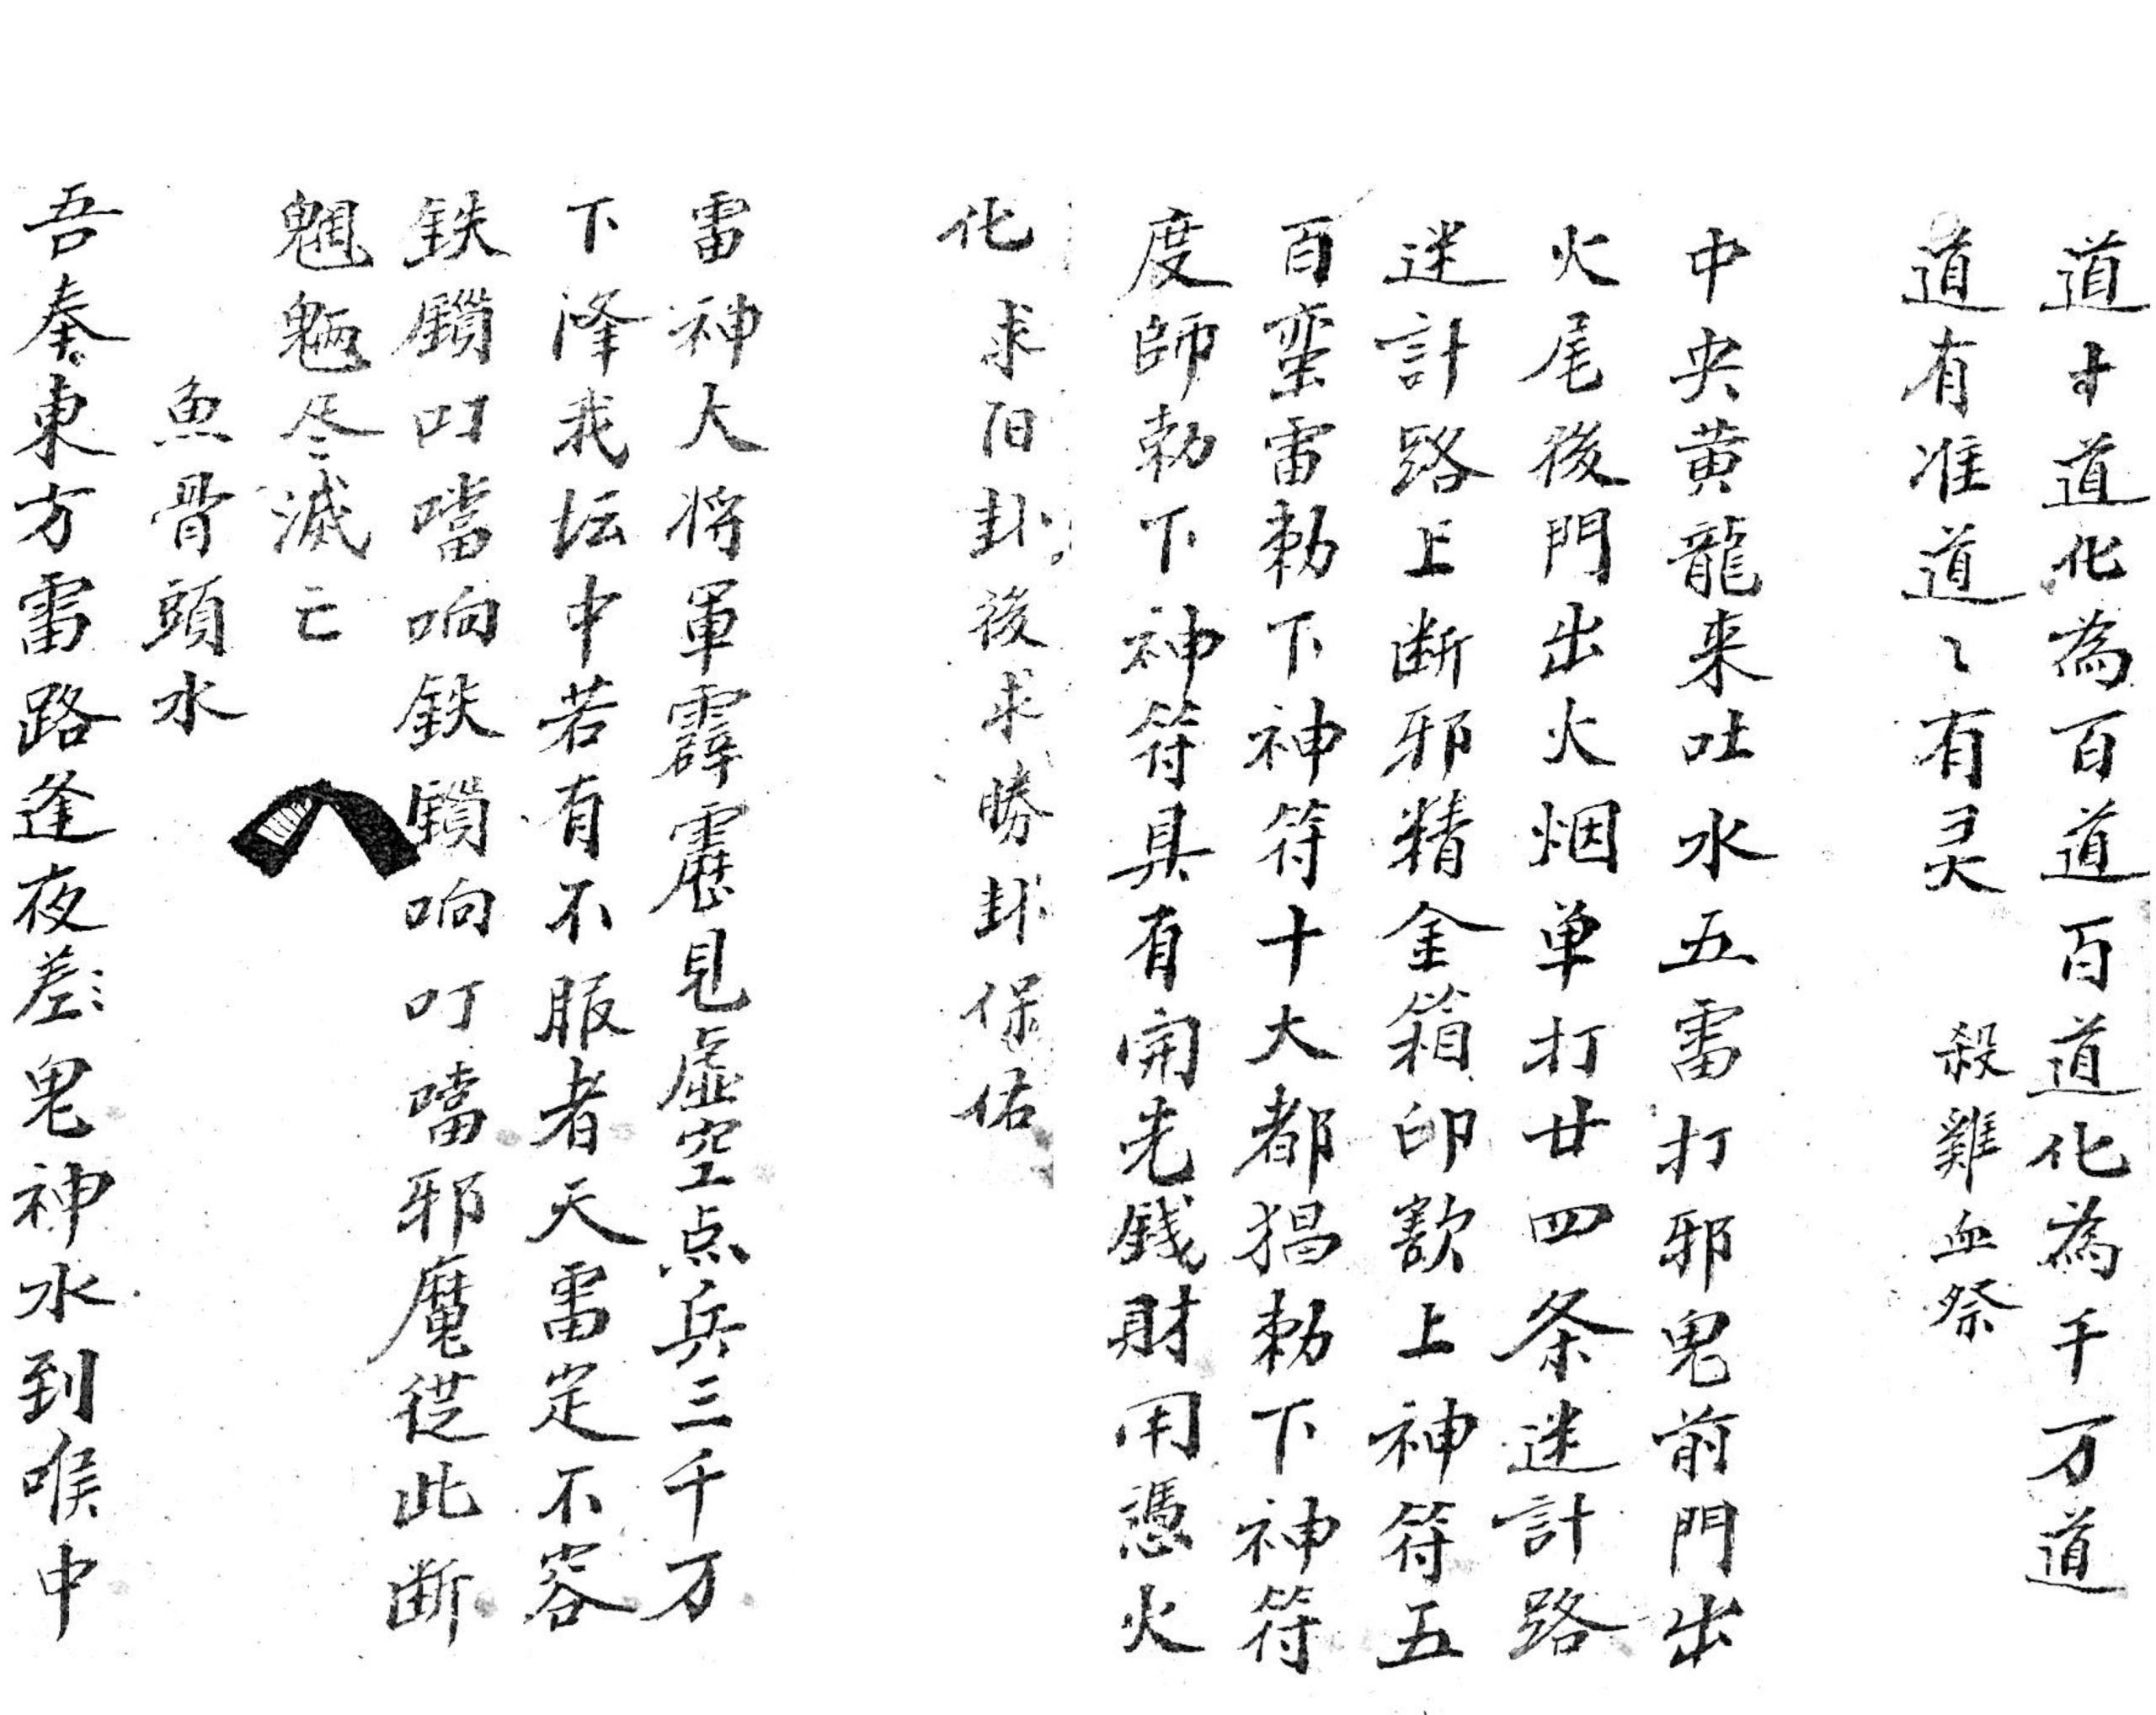 道十道化為百道百道化為千万道
道有准道々有灵　殺雞血祭
中央黄龍来吐水五雷打邪鬼前門出
火尾後門出火烟单打廿四条迷計路
迷計路上断邪精金箱印歀上神符五
百蛮雷勅下神符十大都猖勅下神符
度師勅下神符具有開光錢財用憑火
化求阳卦後求勝卦保佑
雷神大将軍霹靂見虚空点兵三千万
下降我坛中若有不服者天雷定不容
鉄鎖叮噹响鉄鎖响叮噹邪魔從此断
魍魎尽滅亡
魚骨頭水
吾奉東方雷路逢夜差鬼神水到喉中